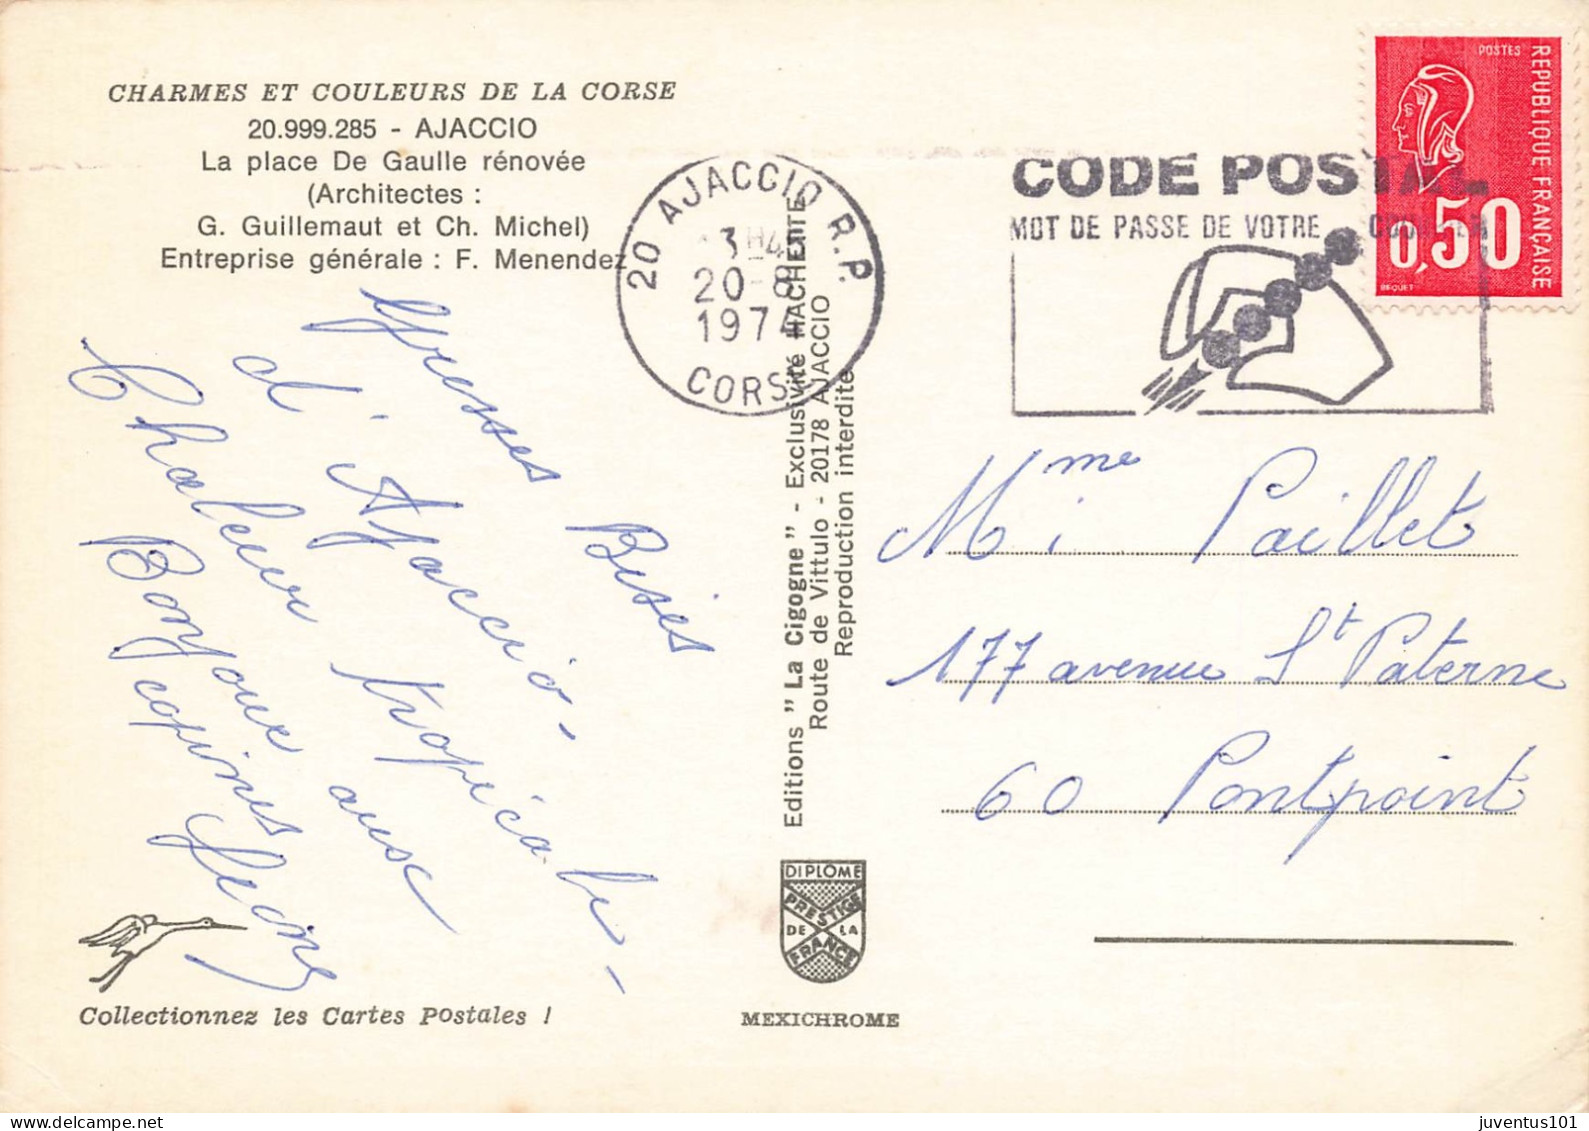 CHARMES ET COULEURS DE LA CORSE
20.999.285 - AJACCIO
La place De Gaulle rénovée
(Architectes :
G. Guillemaut et Ch. Michel)
Entreprise générale : F. Menendez
Grosses Bises
d'Ajaccio -
Chaleur tropicale -
Bonjour aux
copines
Collectionnez les Cartes Postales !
20 AJACCIO R.P.
20-8
1974
CORSE
Editions " La Cigogne " - Exclusivité HACHETTE
Route de Vittulo - 20178 AJACCIO
Reproduction interdite
DIPLÔME
PRESTIGE
DE LA
FRANCE
MEXICHROME
CODE POSTAL
MOT DE PASSE DE VOTRE COURRIER
POSTES
REPUBLIQUE FRANÇAISE
0,50
BEQUET
Mme Paillet
177 avenue St Paterne
60 Pontpoint
juventus101